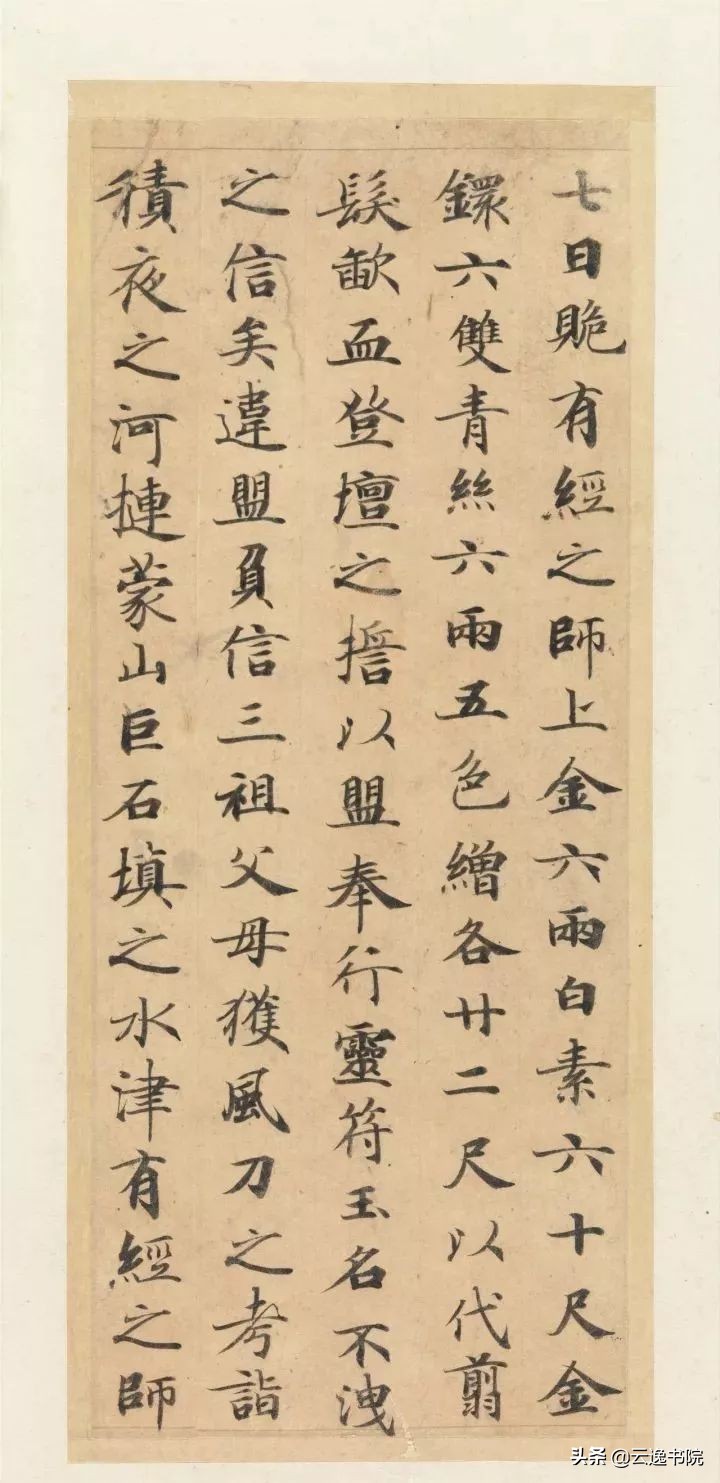 七日賝有經之師上金六兩白素六十尺金
鐶六雙青絲六兩五色繒各廿二尺以代翦
髮歃血登壇之擔以盟奉行靈符玉名不洩
之信矣違盟負信三祖父母獲風刀之考詣
積夜之河摙蒙山巨石填之水津有經之師
头条 @云逸书院